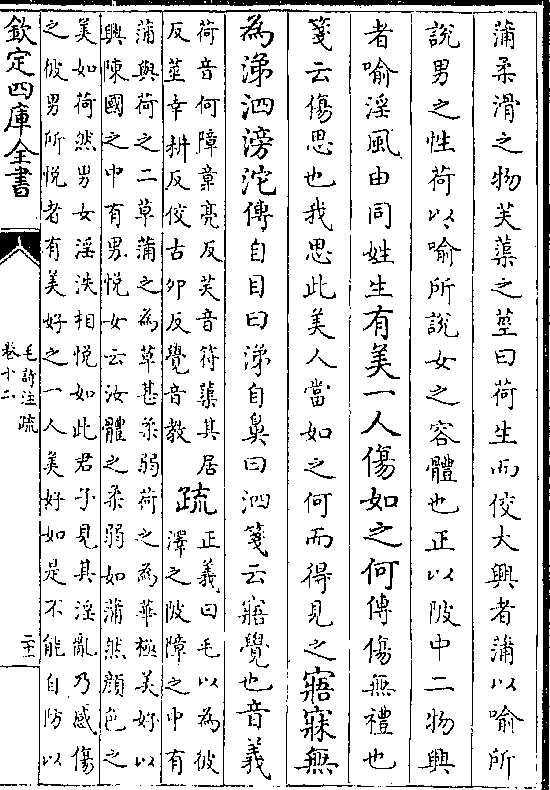 蒲柔滑之物芙蕖之莖曰荷生而佼大興者蒲以喻所
說男之性荷以喻所說女之容體也正以陂中二物興
者喻淫風由同姓生有美一人傷如之何傳傷無禮也
箋云傷思也我思此美人當如之何而得見之寤寐無
為涕泗滂沱傳自目曰涕自鼻曰泗箋云寤覺也音義
荷音何障章亮反芙音符蕖其居
反莖幸耕反佼古卯反覺音教
疏
正義曰毛以為彼
澤之陂障之中有
蒲與荷之二草蒲之為草甚柔弱荷之為華極美好以
興陳國之中有男悅女云汝體之柔弱如蒲然顏色之
美如荷然男女淫泆相悅如此君子見其淫亂乃感傷
之彼男所悅者有美好之一人美好如是不能自防以
欽定四庫全書
毛詩注疏
卷十二
二十